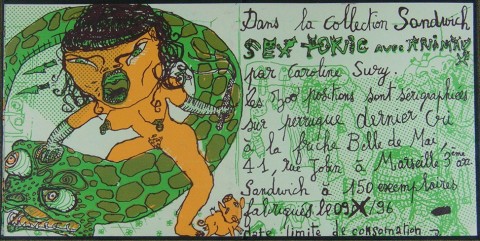 Dans la collection Sandwich
SEX TOXIC avec ANIMAUX
par Caroline Sury.
Les 300 portions sont sérigraphiées
sur perruque dernier cri
à la friche Belle de Mai,
41, rue Jobin à Marseille 3ème
Sandwich à 150 exemplaires
fabriqués le 09 X /96
date limite de consomation